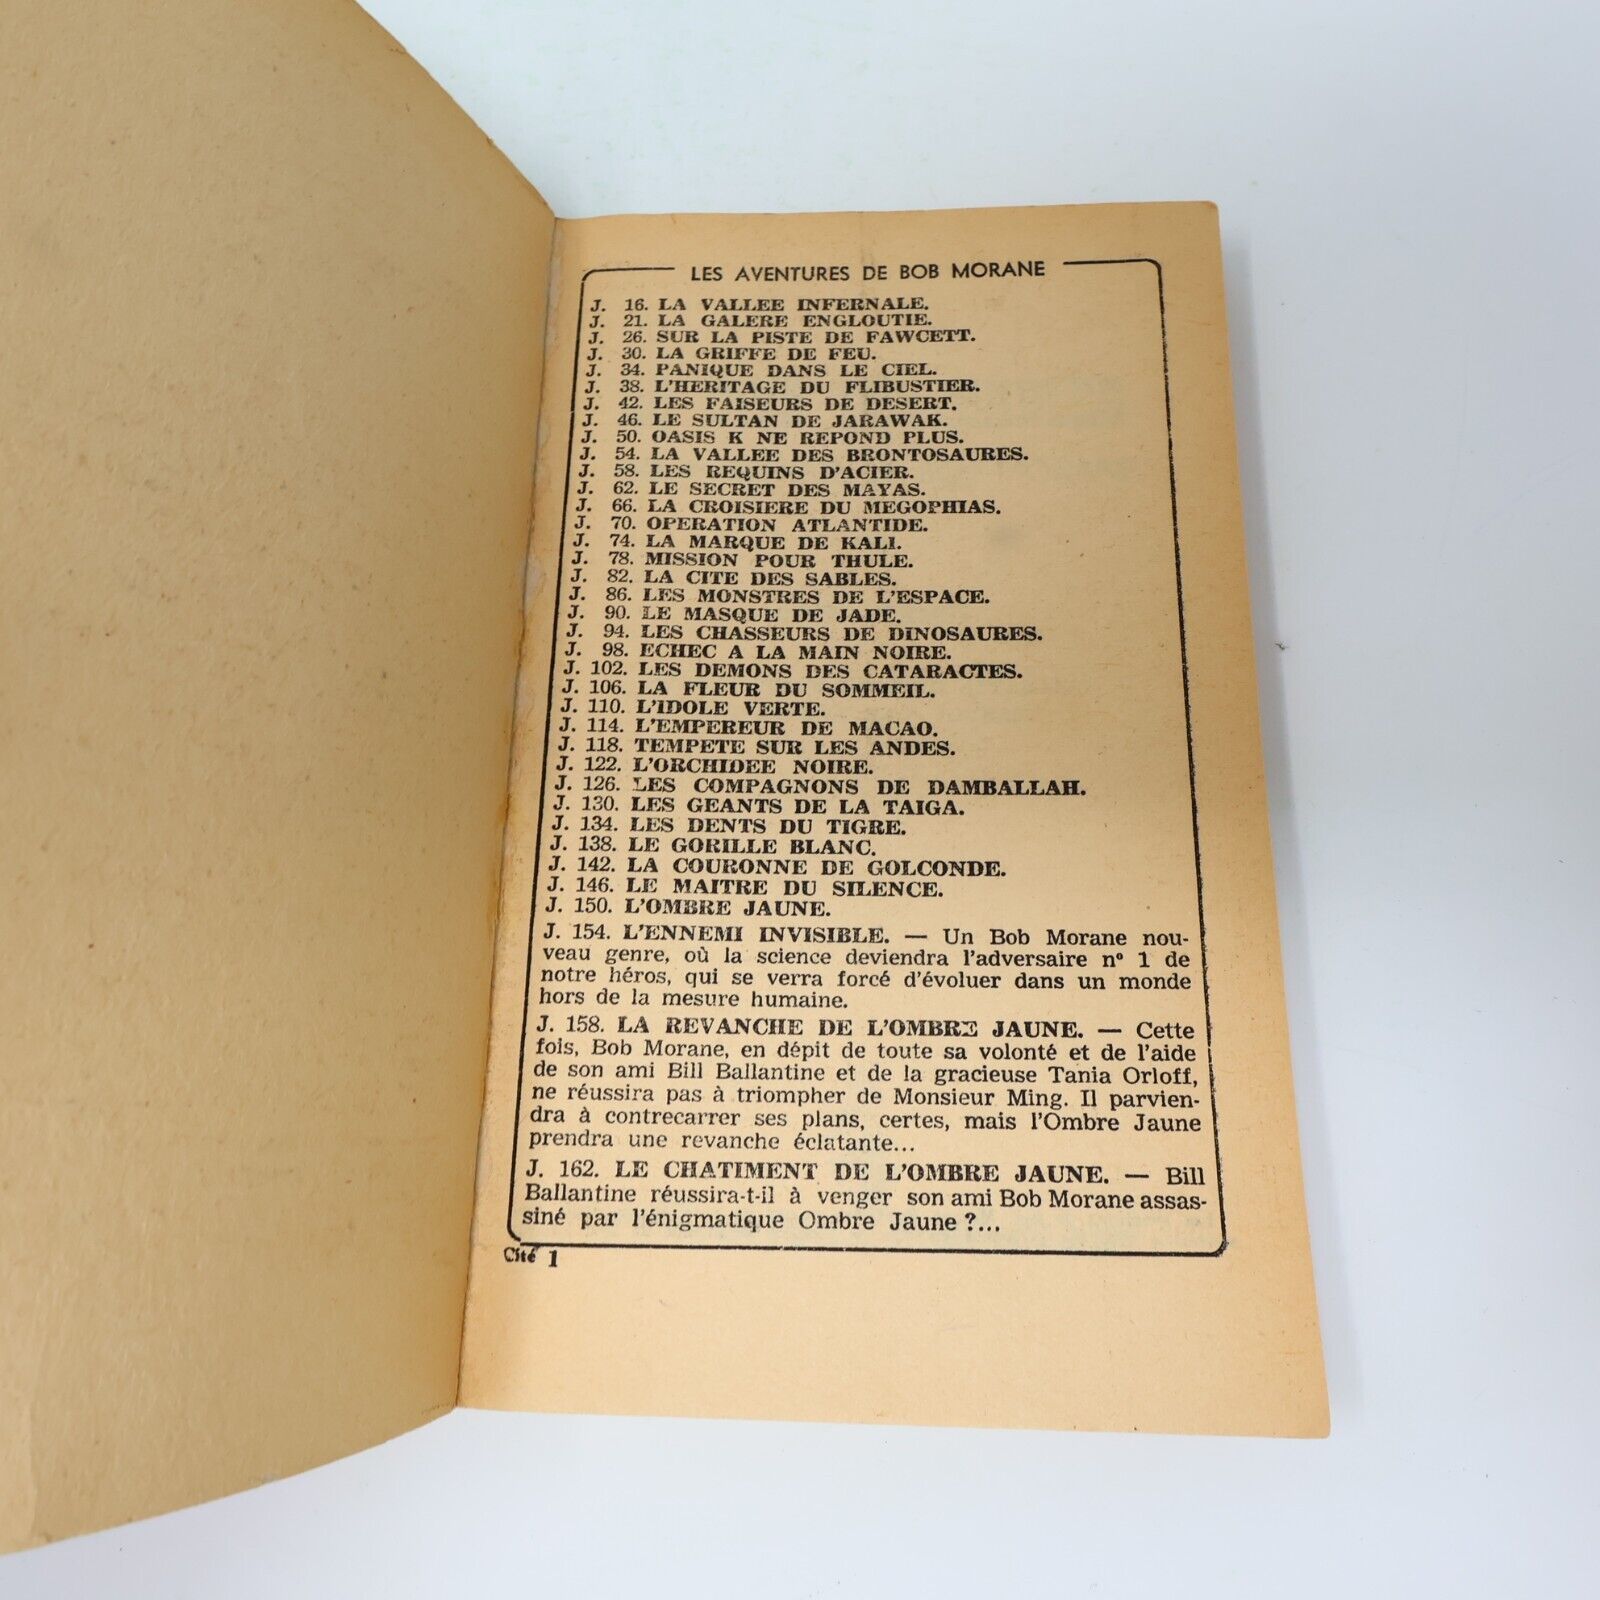 LES AVENTURES DE BOB MORANE
J. 16. LA VALLEE INFERNALE.
J. 21. LA GALERE ENGLOUTIE.
J. 26. SUR LA PISTE DE FAWCETT.
J. 30. LA GRIFFE DE FEU.
J. 34. PANIQUE DANS LE CIEL.
J. 38. L'HERITAGE DU FLIBUSTIER.
J. 42. LES FAISEURS DE DESERT.
J. 46. LE SULTAN DE JARAWAK.
J. 50. OASIS K NE REPOND PLUS.
J. 54. LA VALLEE DES BRONTOSAURES.
J. 58. LES REQUINS D'ACIER.
J. 62. LE SECRET DES MAYAS.
J. 66. LA CROISIERE DU MEGOPHIAS.
J. 70. OPERATION ATLANTIDE.
J. 74. LA MARQUE DE KALI.
J. 78. MISSION POUR THULE.
J. 82. LA CITE DES SABLES.
J. 86. LES MONSTRES DE L'ESPACE.
J. 90. LE MASQUE DE JADE.
J. 94. LES CHASSEURS DE DINOSAURES.
J. 98. ECHEC A LA MAIN NOIRE.
J. 102. LES DEMONS DES CATARACTES.
J. 106. LA FLEUR DU SOMMEIL.
J. 110. L'IDOLE VERTE.
J. 114. L'EMPEREUR DE MACAO.
J. 118. TEMPETE SUR LES ANDES.
J. 122. L'ORCHIDEE NOIRE.
J. 126. LES COMPAGNONS DE DAMBALLAH.
J. 130. LES GEANTS DE LA TAIGA.
J. 134. LES DENTS DU TIGRE.
J. 138. LE GORILLE BLANC.
J. 142. LA COURONNE DE GOLCONDE.
J. 146. LE MAITRE DU SILENCE.
J. 150. L'OMBRE JAUNE.
J. 154. L'ENNEMI INVISIBLE. — Un Bob Morane nou-
veau genre, où la science deviendra l'adversaire n° 1 de
notre héros, qui se verra forcé d'évoluer dans un monde
hors de la mesure humaine.
J. 158. LA REVANCHE DE L'OMBRE JAUNE. — Cette
fois, Bob Morane, en dépit de toute sa volonté et de l'aide
de son ami Bill Ballantine et de la gracieuse Tania Orloff,
ne réussira pas à triompher de Monsieur Ming. Il parvien-
dra à contrecarrer ses plans, certes, mais l'Ombre Jaune
prendra une revanche éclatante...
J. 162. LE CHATIMENT DE L'OMBRE JAUNE. — Bill
Ballantine réussira-t-il à venger son ami Bob Morane assas-
siné par l'énigmatique Ombre Jaune ?...
Cité 1